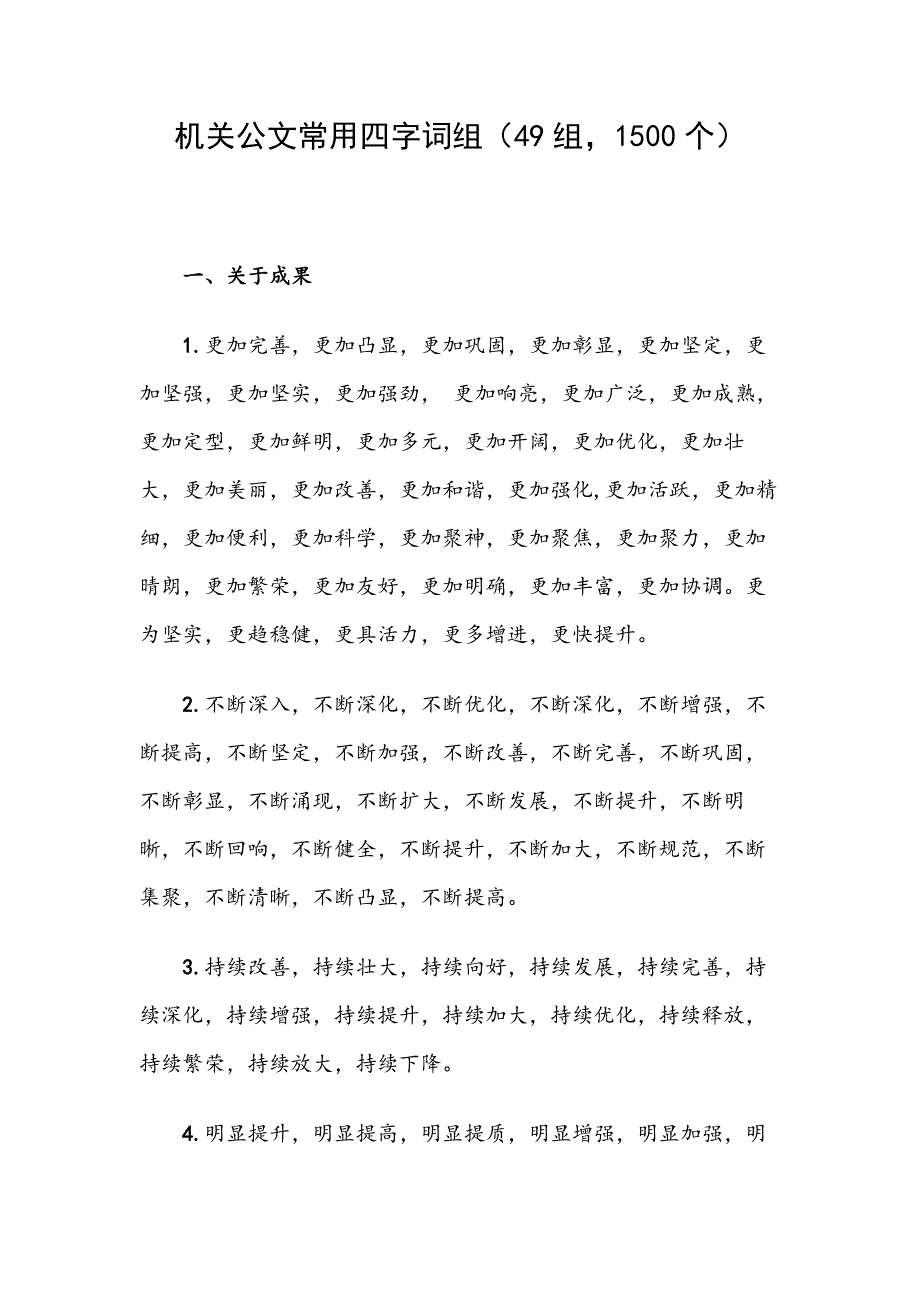 机关公文常用四字词组（49 组，1500 个）
一、关于成果
1.更加完善，更加凸显，更加巩固，更加彰显，更加坚定，更
加坚强，更加坚实，更加强劲， 更加响亮，更加广泛，更加成熟，
更加定型，更加鲜明，更加多元，更加开阔，更加优化，更加壮
大，更加美丽，更加改善，更加和谐，更加强化,更加活跃，更加精
细，更加便利，更加科学，更加聚神，更加聚焦，更加聚力，更加
晴朗，更加繁荣，更加友好，更加明确，更加丰富，更加协调。更
为坚实，更趋稳健，更具活力，更多增进，更快提升。
2.不断深入，不断深化，不断优化，不断深化，不断增强，不
断提高，不断坚定，不断加强，不断改善，不断完善，不断巩固，
不断彰显，不断涌现，不断扩大，不断发展，不断提升，不断明
晰，不断回响，不断健全，不断提升，不断加大，不断规范，不断
集聚，不断清晰，不断凸显，不断提高。
3.持续改善，持续壮大，持续向好，持续发展，持续完善，持
续深化，持续增强，持续提升，持续加大，持续优化，持续释放，
持续繁荣，持续放大，持续下降。
4.明显提升，明显提高，明显提质，明显增强，明显加强，明